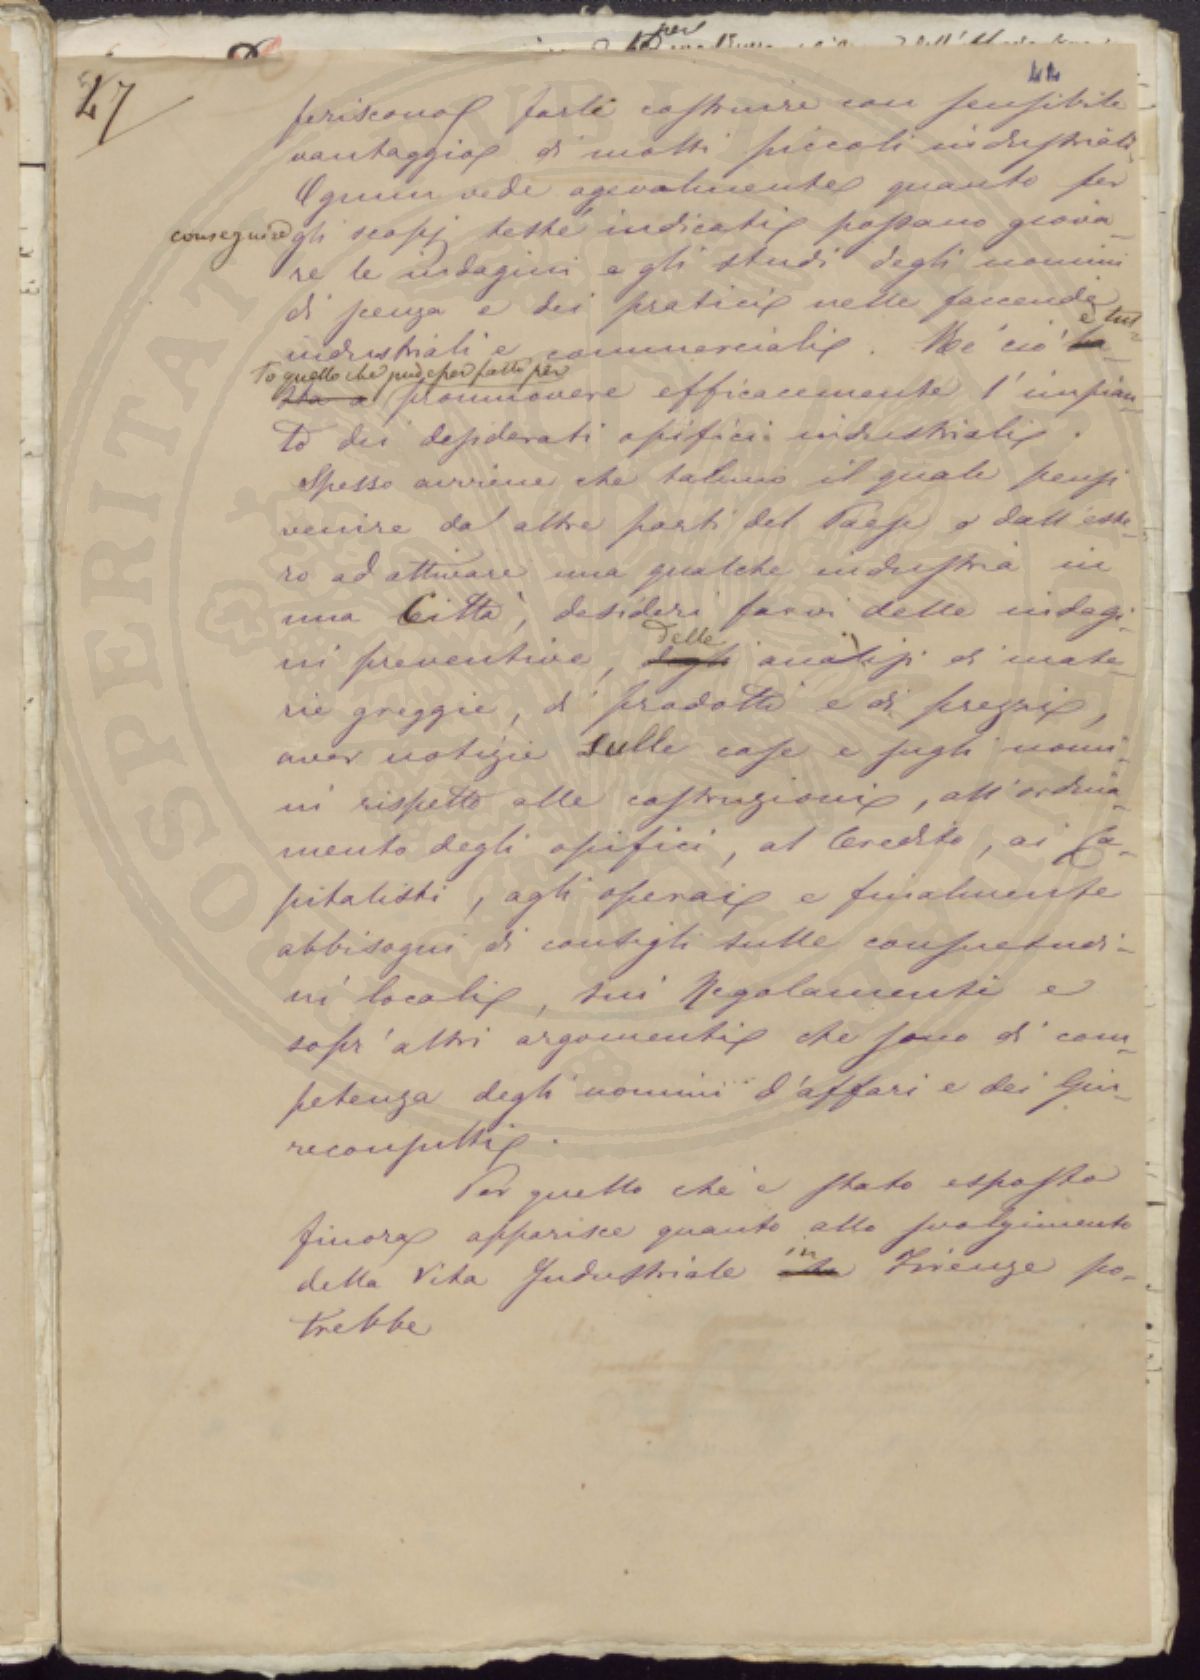 47
44
feriscono farli costruire con sensibile
vantaggio di molti piccoli industriali.
Ognun vede agevolmente quanto per
conseguire gli scopj testé indicati possano giova-
re le indagini e gli studi degli uomini
di scenza e dei pratici nelle faccende
industriali e commerciali. Né ciò è tut-
to quello che può esser fatto per
promuovere efficacemente l'impian-
to dei desiderati opifici industriali.
Spesso avviene che taluno il quale pensi
venire da altre parti del Paese o dall'este-
ro ad attivare una qualche industria in
una Città, desideri farvi delle indagi-
ni preventive, delle analisi di mate-
rie greggie, di prodotti e di prezzi,
aver notizie sulle cose e sugli uomi-
ni rispetto alle costruzioni, all'ordina-
mento degli opifici, al Credito, ai Ca-
pitalisti, agli operai e finalmente
abbisogni di consigli sulle consuetudi-
ni locali, sui Regolamenti e
sopr'altri argomenti che sono di com-
petenza degli uomini d'affari e dei Giu-
reconsulti.
Per quello che è stato esposto
finora apparisce quanto allo svolgimento
della Vita Industriale in Firenze po-
trebbe
OSPERITAT